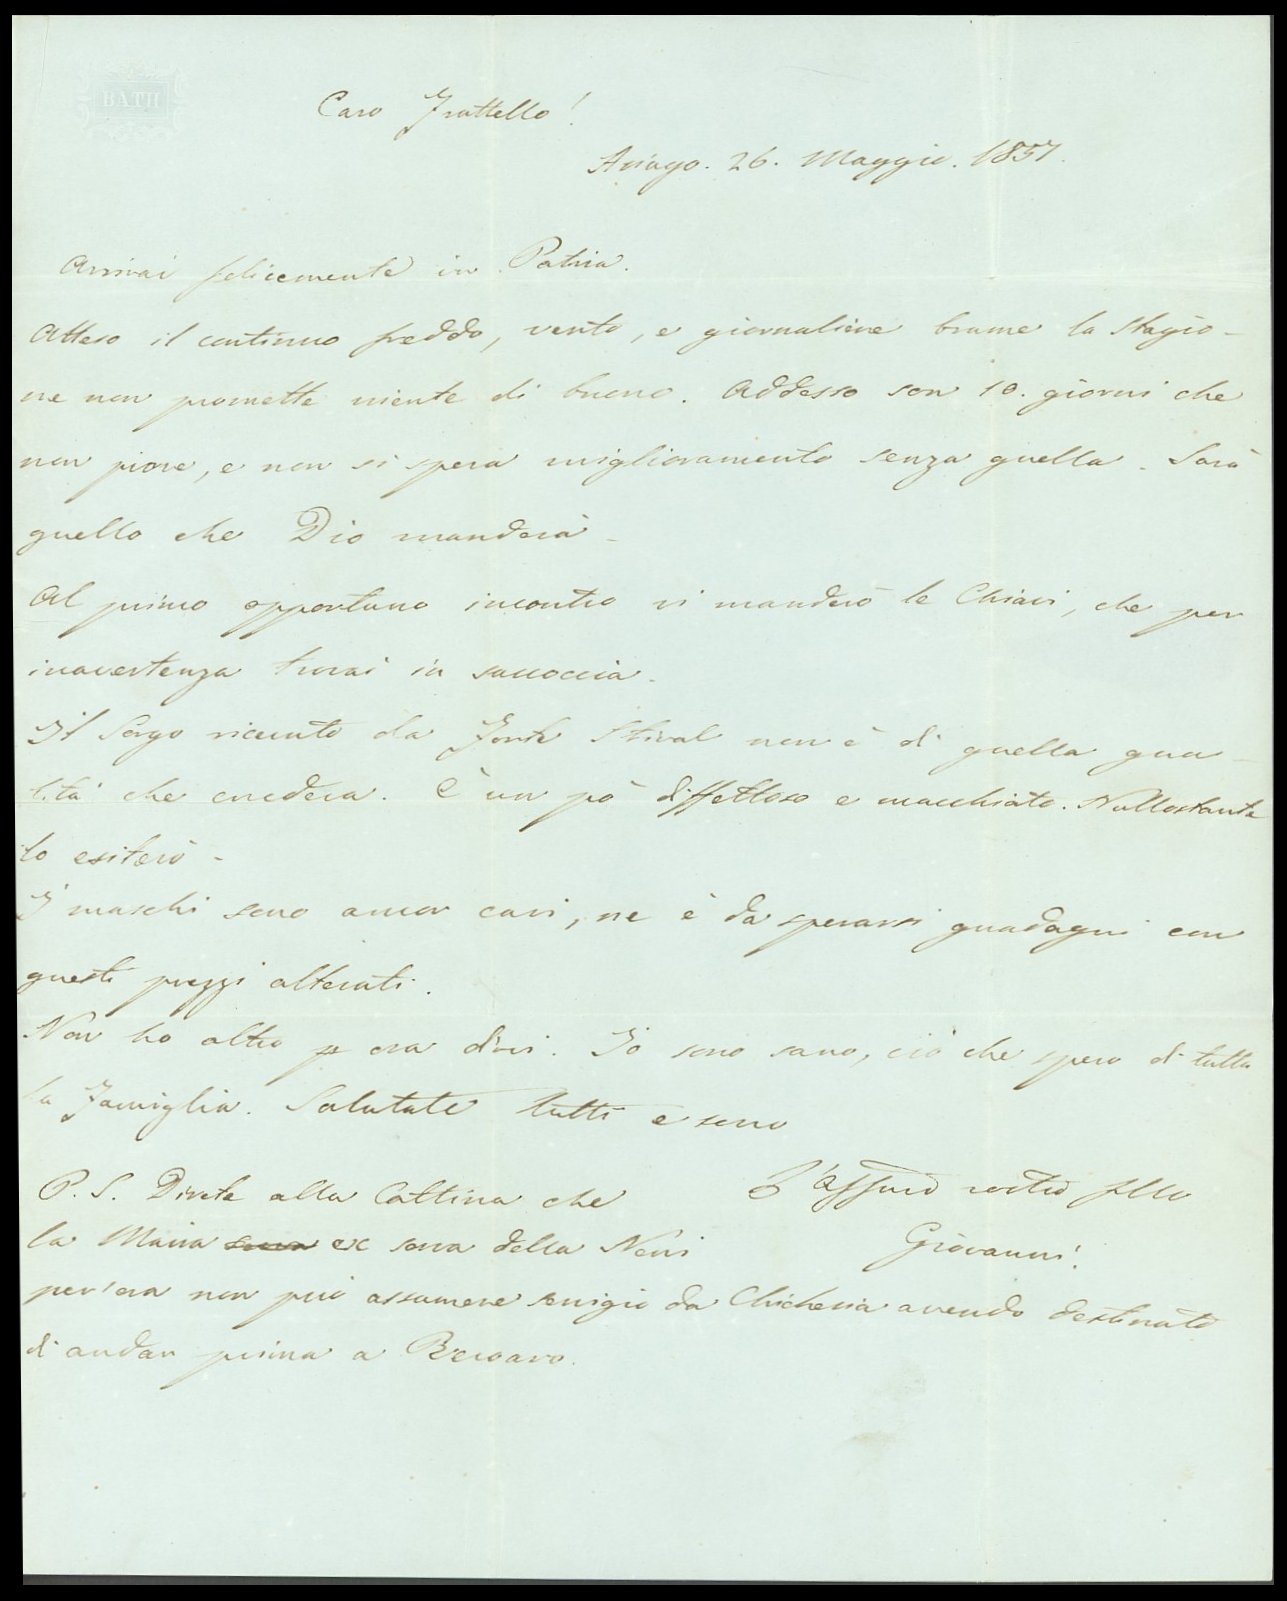 BATH
Caro Frattello!
Asiago. 26. Maggio. 1857.
Arrivai felicemente in Patria.
Atteso il continuo freddo, vento, e giornaliere brume la stagio-
ne non promette niente di buono. Addesso son 10. giorni che
non piove, e non si spera miglioramento senza quella. Sarà
quello che Dio manderà -
Al primo opportuno incontro vi manderò le Chiavi, che per
inavertenza trovai in saccoccia.
Il Sorgo ricevuto da Stival non è di quella qua-
lità che credeva. È un pò diffettoso e macchiato. Nullostante
lo esiterò -
I maschi sono ancor cari, ne è da sperarsi guadagni con
questi prezzi alterati.
Non ho altro p ora dirvi. Io sono sano, ciò che spero di tutta
la Famiglia. Salutate tutti e sono
L'affmo vostro fllo
Giovanni.
P. S. Direte alla Cattina che
la Maria serva ex serva della Neni
per'ora non può assumere servigio da Chicheria avendo destinato
di andar prima a Recoaro.